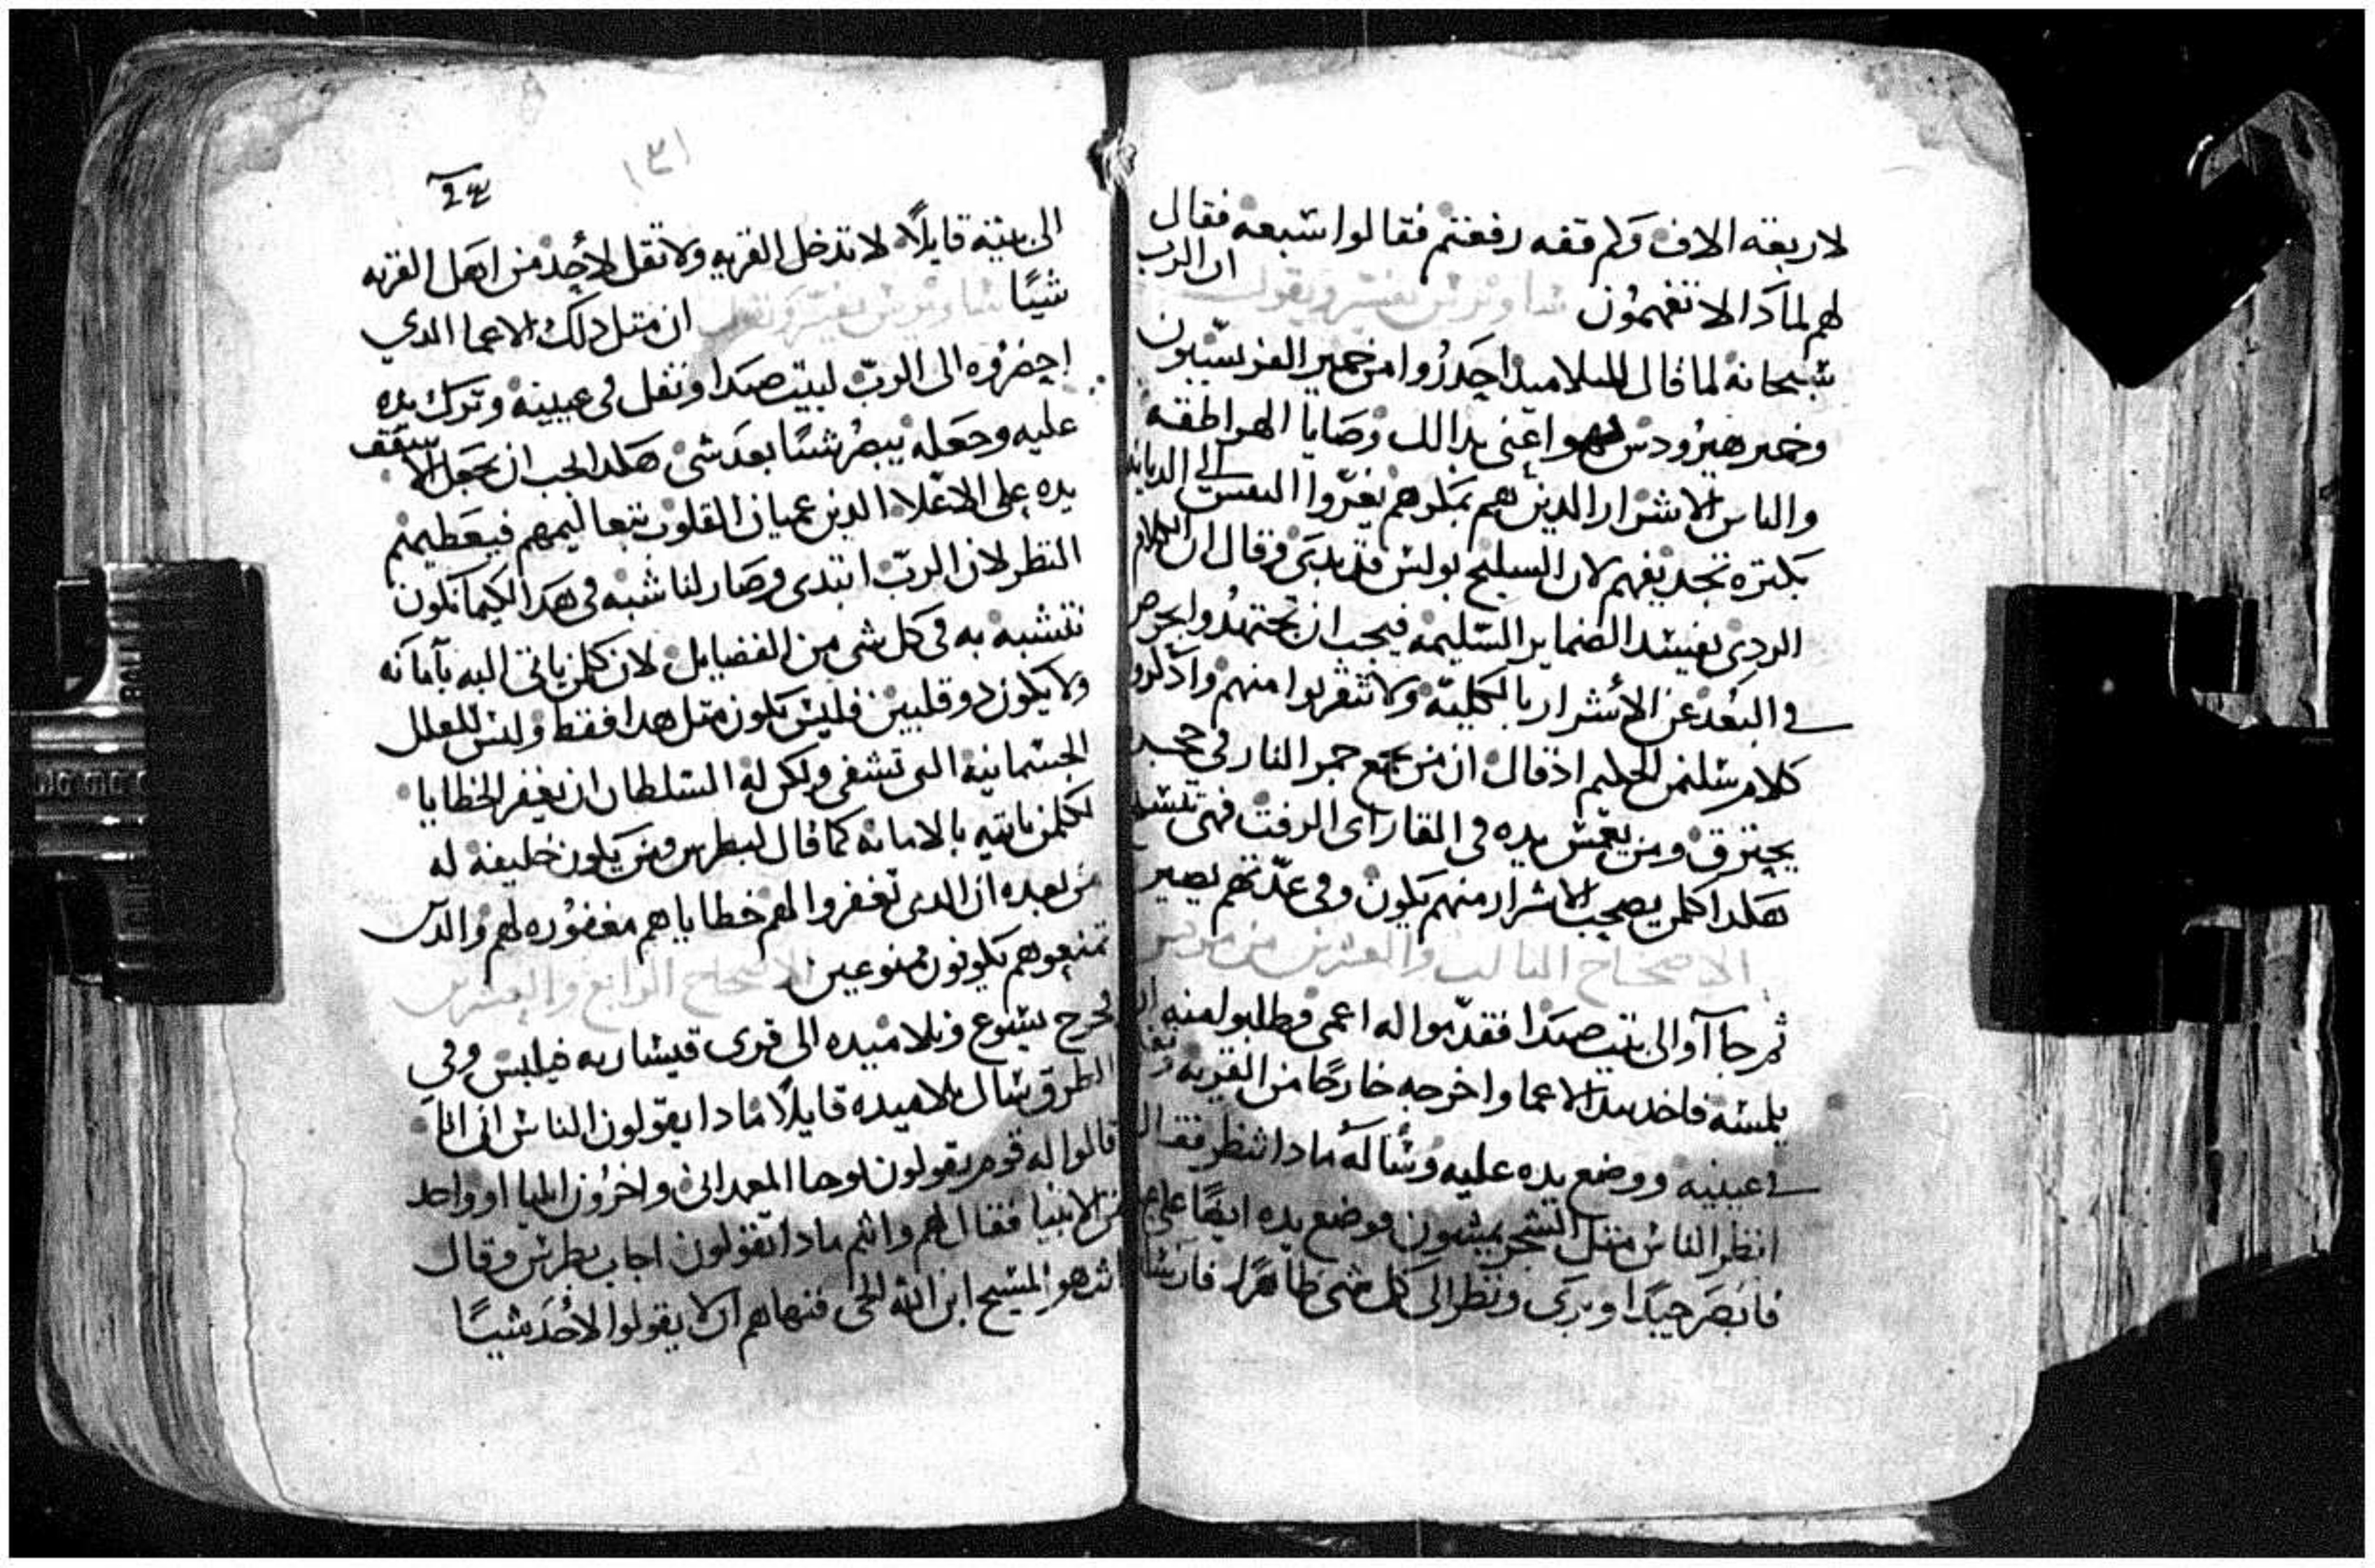 لاربعة الاف وكم قفه رفعتم فقالوا سبعه فقال
لهم لماذا لا تفهمون ساويرس يفسر ويقول ان الرب
سبحانه لما قال للتلاميد احدروا من خمير الفريسيون
وخمير هيرودس فهو اعني بدالك وصايا الهراطقه
والناس الاشرار الدين هم بمكرهم يغروا النفس الى
بكتره تجديفهم لان السليح بولس قد بدى وقال ان الكلام
الردي يفسد الضماير السليمه فيجب ان تجتهدوا بحرص
في البعد عن الاشرار بالكليه ولا تتقربوا منهم وادكروا
كلام سليمن الحكيم اذ قال ان من يجمع جمر النار في حجره
يحترق ومن يغمس يده في القار اى الزفت فهى
هكدا كلمن يصحب الاشرار منهم يكون وفى عدتهم يصير
الاصحاح التالت والعشرين من مرقس
ثم جاآوا الى بيت صيدا فقدموا له اعمى وطلبو منه ان
يلمسه فاخد بيد الاعما واخرجه خارجًا من القريه وتفل
في عينيه ووضع يده عليه وسأله مادا تنظر فقال
انظر الناس متل الشجر يمشون فوضع يده ايضًا على
فابصر جيدًا وبرى ونظر الى كل شى ظاهرًا فارسله
24
١٣١
الى بيته قايلًا لا تدخل القريه ولا تقل لاحد من اهل القريه
شيًا ساويرس يفسر ويقول ان متل دلك الاعما الدي
احضروه الى الرب لبيت صيدا وتفل فى عينيه وترك يده
عليه وجعله يبصر شيًا بعد شى هكدا يجب ان يجعل الاسقف
يده على الاعلا الدين عميان القلوب بتعاليمهم فيعطيهم
النظر لان الرب ابتدى وصار لنا شبه فى هدا لكيما نكون
نتشبه به فى كل شى من الفضايل لان كلمن ياتى اليه بآمآنه
ولا يكون دو قلبين فليس يكون متل هدا فقط وليس للعلل
الجسمانيه التى تشفى ولكن له السلطان ان يغفر الخطايا
لكلمن ياتيه بالامانه كما قال لبطرس ومن يكون خليفة له
من بعده ان الدى تغفروا لهم خطاياهم مغفوره لهم والدين
تمنعوهم يكونون ممنوعين الاصحاح الرابع والعشرين
لخرج يسوع وتلاميده الى قرى قيساريه فيلبس وفي
الطرق سال تلاميده قايلًا مادا يقولون الناس انى انا
قالوا له قوم يقولون يوحنا المعمدانى واخرون ايليا او واحد
من الانبيا فقال لهم وانتم مادا تقولون اجاب بطرس وقال
انت هو المسيح ابن الله الحى فنهاهم ان لا يقولوا لاحد شيًا